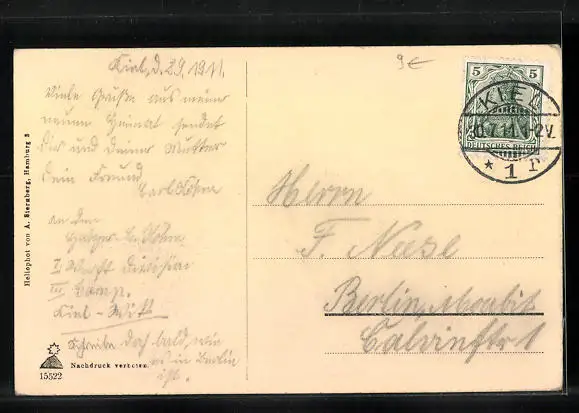 Kiel, d. 29. 1911.
Viele Grüße aus meiner
neuen Heimat sendet
Dir und deiner Mutter
dein Freund
Carl
an den
I Werft Division
III Comp.
Kiel-Witt
Schreibe doch bald, wie
es in Berlin
ist.
9€
5 5
DEUTSCHES REICH
KIEL
30.7.11.1-2V.
* 1 r
Herrn
F. Nase
Berlin, Moabit
Calvinstr 1
Heliophot von A. Sternberg, Hamburg 3
Nachdruck verboten.
15522